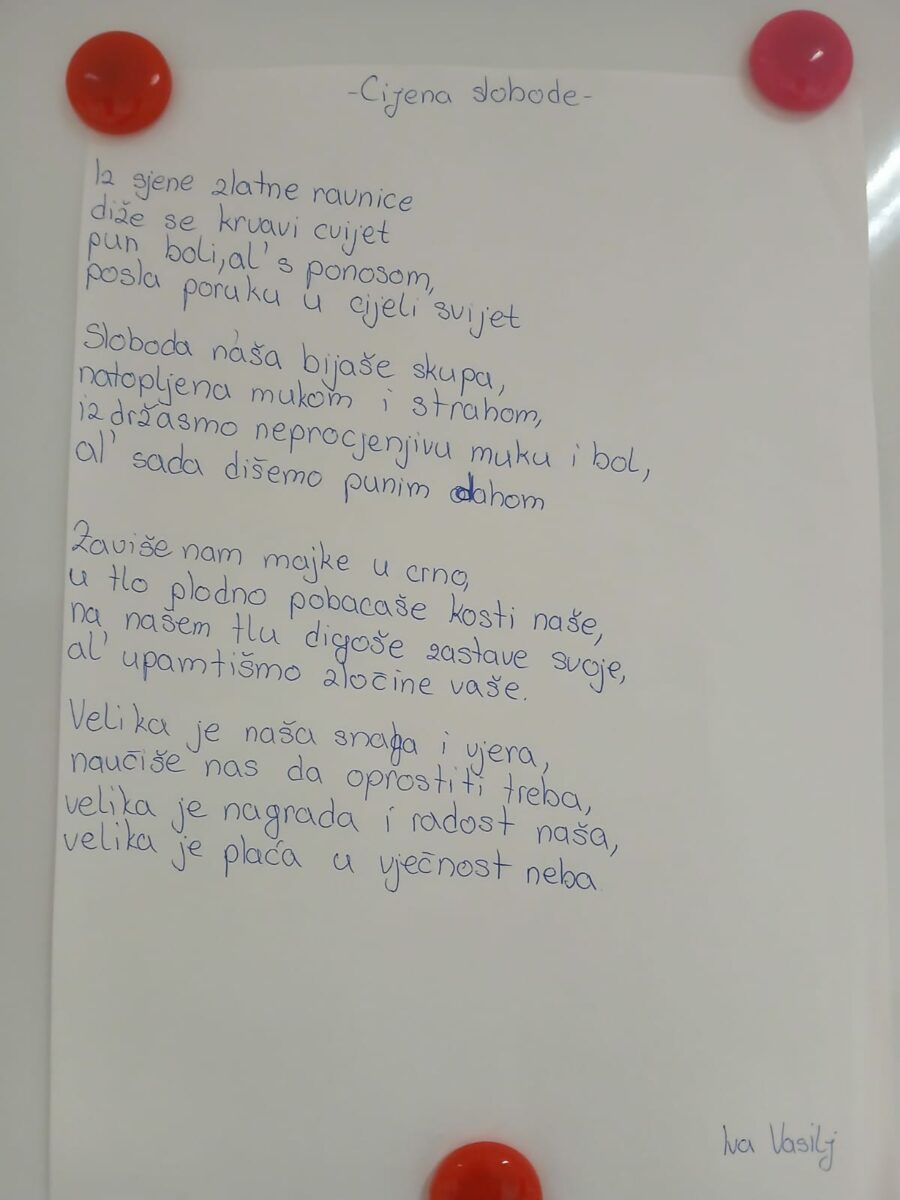 -Cijena slobode-
Iz sjene zlatne ravnice
diže se krvavi cvijet
pun boli,al's ponosom,
posla poruku u cijeli svijet
Sloboda naša bijaše skupa,
natopljena mukom i strahom,
izdržasmo neprocjenjivu muku i bol,
al' sada dišemo punim dahom
Zaviše nam majke u crno,
u tlo plodno pobacaše kosti naše,
na našem tlu digoše zastave svoje,
al' upamtišmo zločine vaše.
Velika je naša snaga i vjera,
naučiše nas da oprostiti treba,
velika je nagrada i radost naša,
velika je plaća u vječnost neba
Iva Vasilj